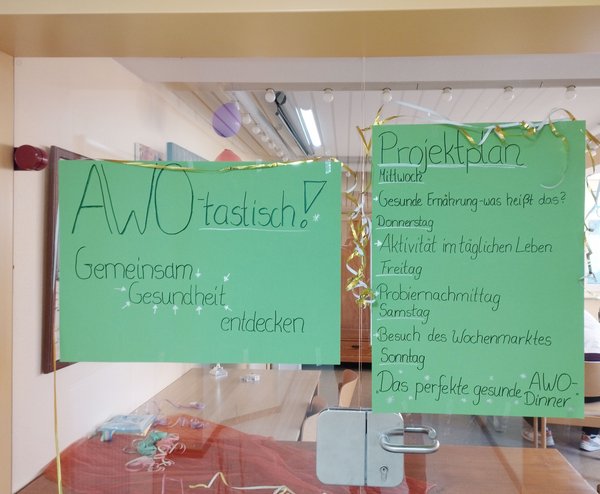 AWO-tastisch!
Gemeinsam
Gesundheit
entdecken
Projektplan
Mittwoch
Gesunde Ernährung-was heißt das?
Donnerstag
Aktivität im täglichen Leben
Freitag
Probiernachmittag
Samstag
Besuch des Wochenmarktes
Sonntag
Das perfekte gesunde AWO-
Dinner